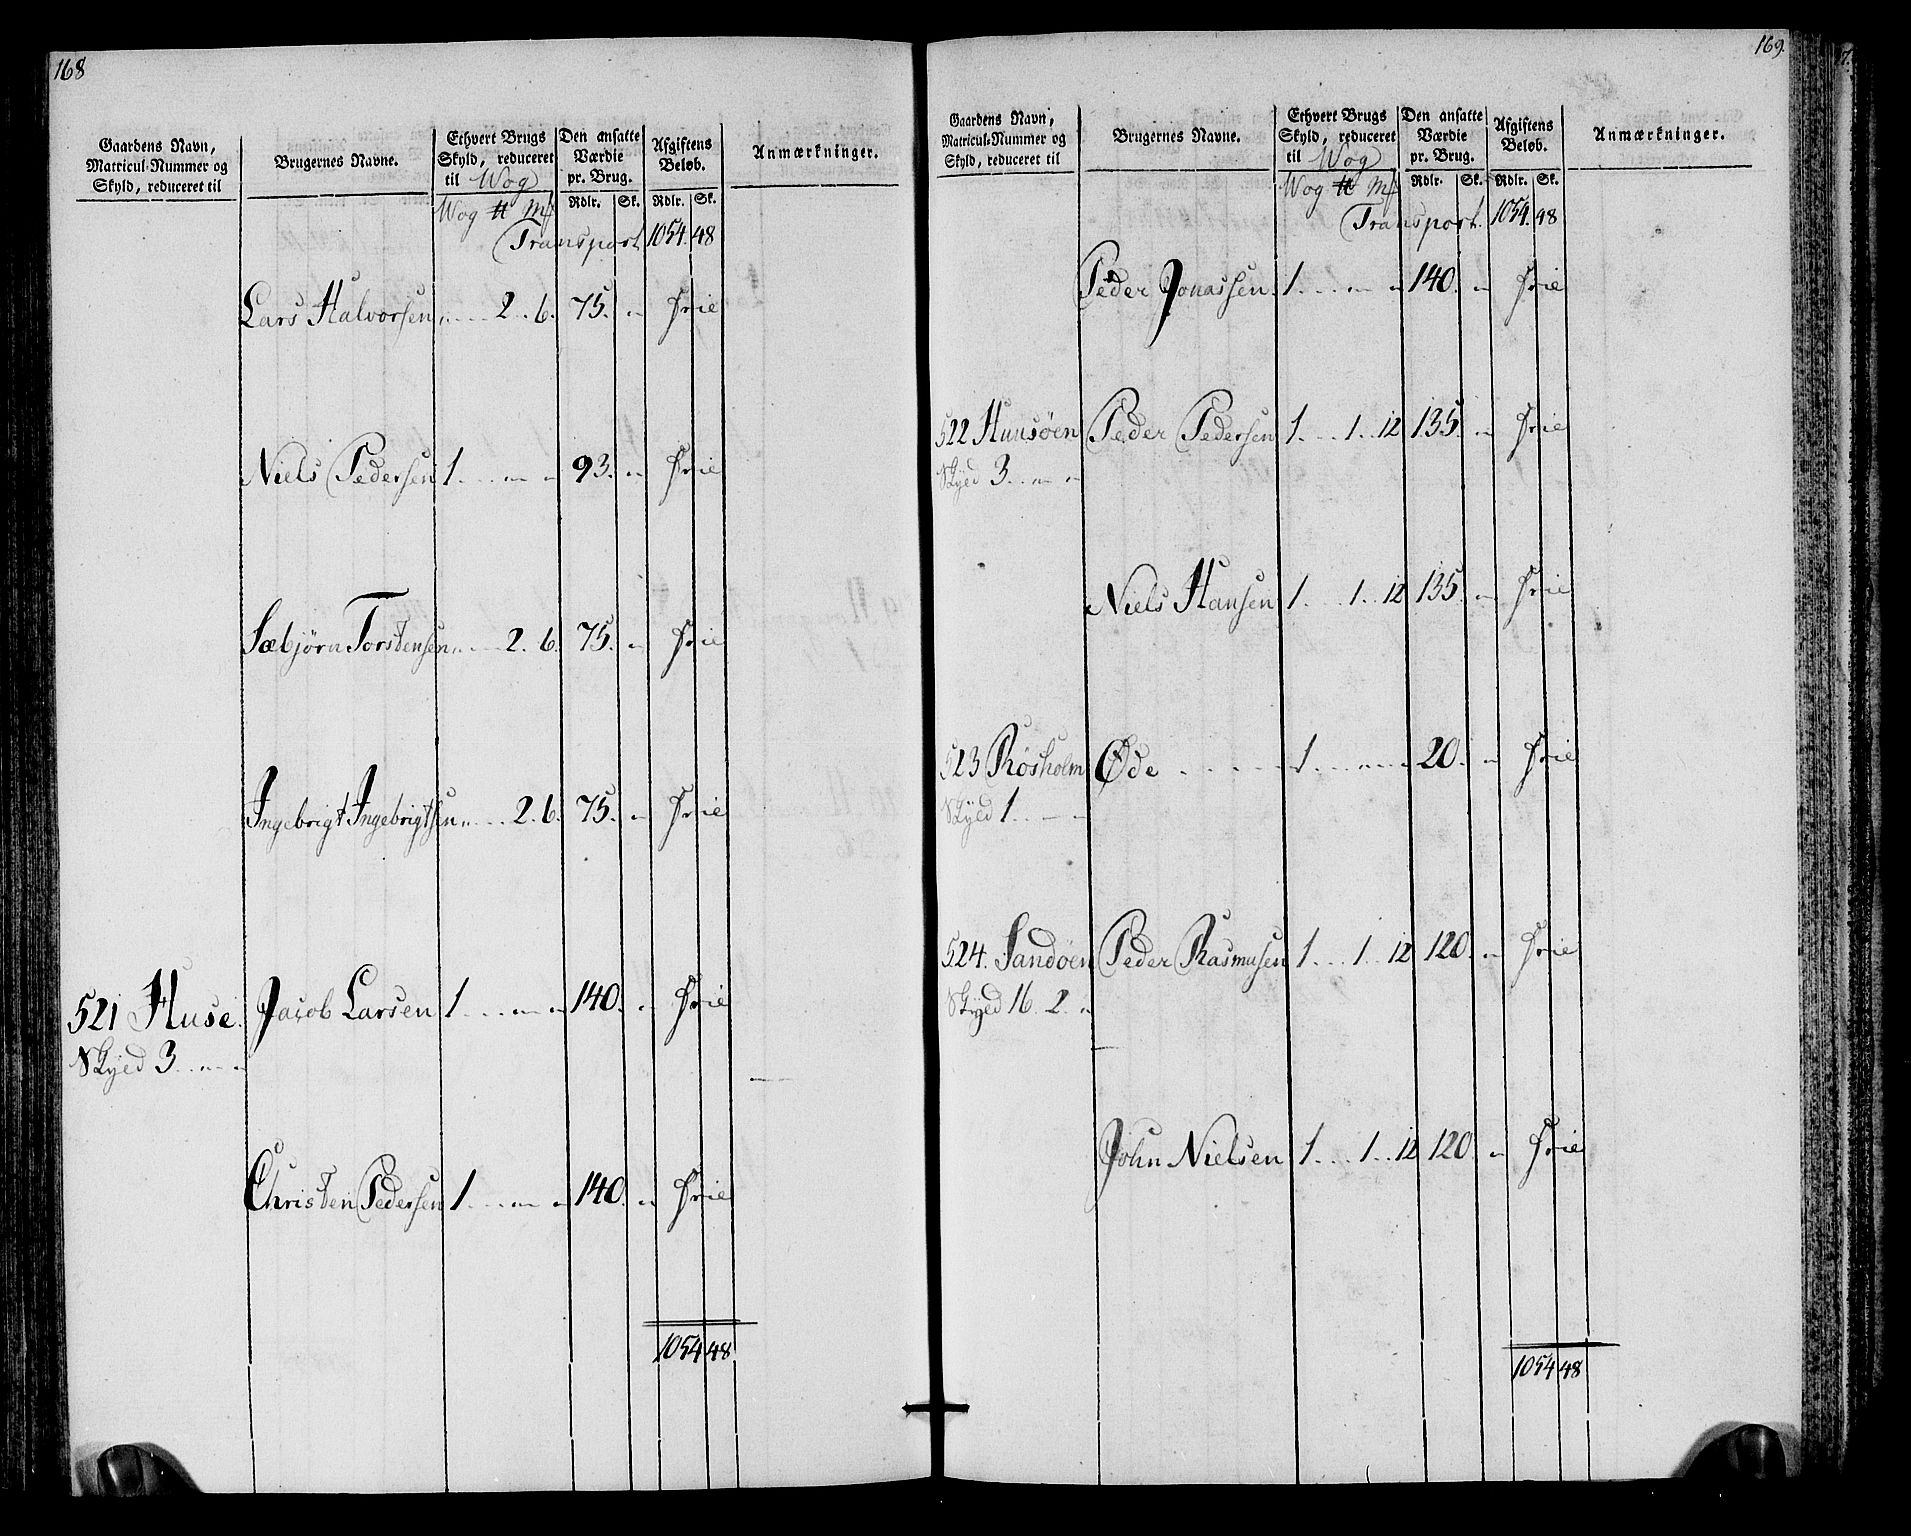 168
Gaardens Navn, Matricul-Nummer og Skyld, reduceret til
Brugernes Navne.
Ethvert Brugs Skyld, reduceret til Wog
Den ansatte Værdie pr. Brug.
Afgiftens Beløb.
Anmærkninger.
Wog ℔ Mf Rdlr. Sk. Rdlr. Sk.
Transport 1054. 48
Lars Halvorsen „ . . . . 2 . . 6. 75. „ Frie
Niels Pedersen 1 . . . „ „ 93. „ Frie
Sæbjörn Torstensen „ . . . 2 . 6. 75. „ Frie
Ingebrigt Ingebrigtsen „ . . . 2 . 6. 75. „ Frie
521 Huse. Jacob Larsen 1 . . . . „ „ 140. „ Frie
Skyed 3 . . „ „
Christen Pedersen 1 . . . „ „ 140. „ Frie
1054 48
169.
Gaardens Navn, Matricul-Nummer og Skyld, reduceret til
Brugernes Navne.
Ethvert Brugs Skyld, reduceret til Wog
Den ansatte Værdie pr. Brug.
Afgiftens Beløb.
Anmærkninger.
Wog ℔ Mf Rdlr. Sk. Rdlr. Sk.
Transport. 1054. 48
Peder Jonassen. 1 . . . „ „ 140. „ Frie
522 Huusöen Peder Pedersen 1 . . . 1 . . 12 135. „ Frie
Skyed 3 . . „ „
Niels Hansen 1 . . . 1 . . 12 135. „ Frie
523 Røsholm Øde . . . . . 1 . . . „ „ 20. „ Frie
Skyed 1 . . „ „
524. Sandöen Peder Rasmusen 1 . . . 1 . . 12 120. „ Frie
Skyed 16 . 2 . „
John Nielsen 1 . . . 1 . . 12 120. „ Frie
1054 48